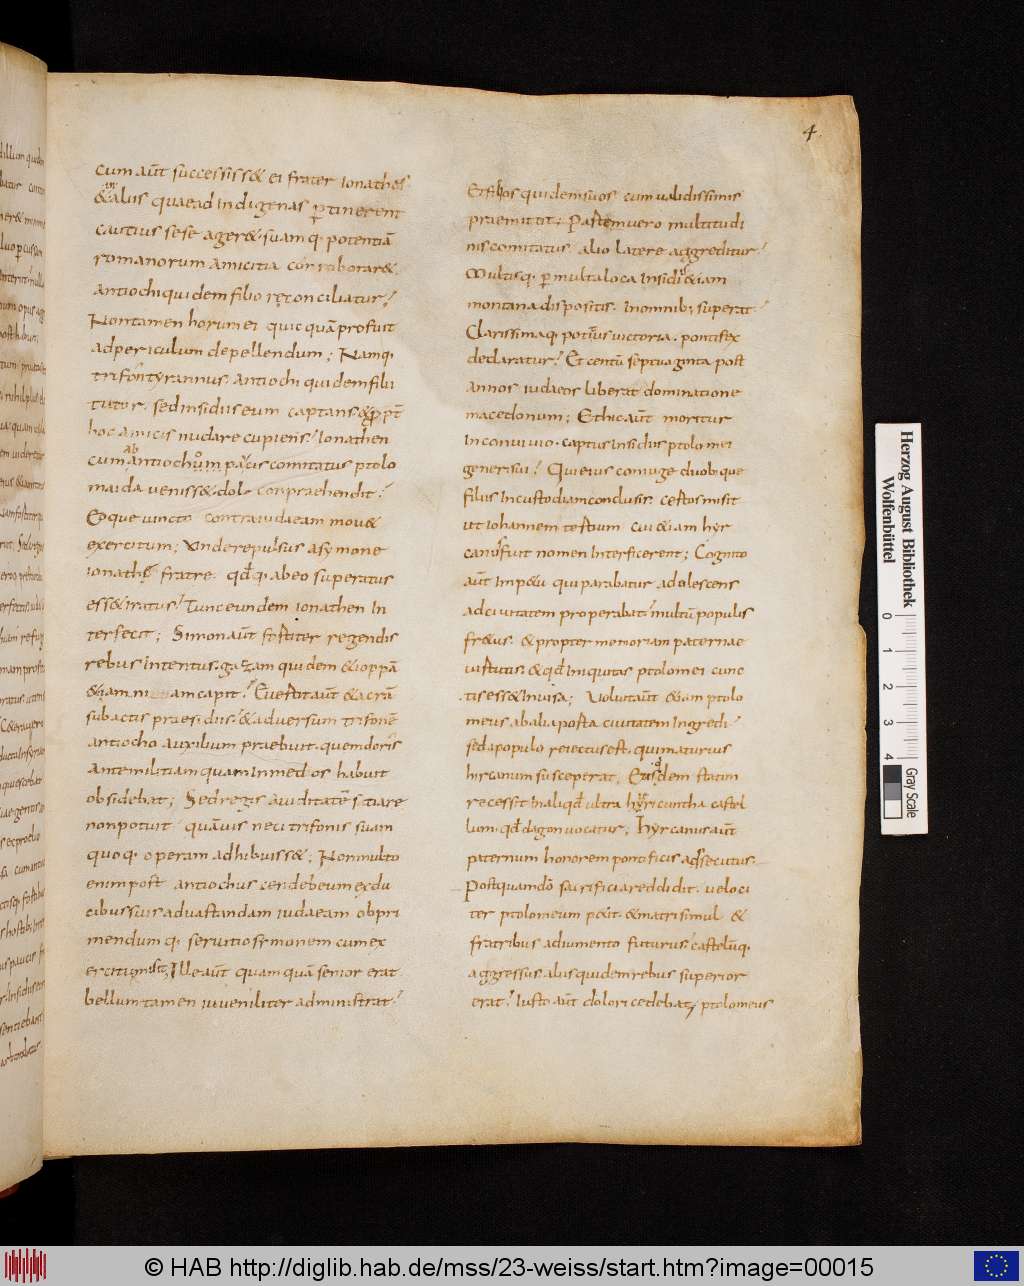 4
cum aūt successiss& ei frater ionathes
& in alus quae ad indigenas ptinerent
cautius sese ager& suamq. potentiā
romanorum amicitia corroborar&.
antiochi quidem filio reconciliatur;
Non tamen horum ei quicquā profuit
ad periculum depellendum; Namq.
trifon tyrannus. antiochi quidem filii
tutor. sed insidiis eum captans. &
hoc amicis nudare cupiens; ionathen
cum ab antiocho paucis comitatus ptolo
maida veniss& conpraehendit;
Eoque uincto contra iudaeam mou&
exercitum; Vnde repulsus a symone
ionathe fratre. qđ q. ab eo superatus
ess& iratus; Tunc eundem ionathen in
terfecit; Simon aūt fortiter regendis
rebus intentus. gazam quidem & ioppā
& iamniam capit; Euertit aūt & acrā
subactis praesidiis. & aduersum trifonē
antiocho auxilium praebuit. quem doris
ante militiam quam in medos habuit
obsidebat; Sed regis auiditatē sitiare
non potuit quāuis neci trifonis suam
quoq. operam adhibuiss&; Non multo
enim post antiochus cendebeum exdu
cibus suis ad uastandam iudaeam obpri
mendumq. seruitio symonem cum ex
ercitu misit, Ille aūt quamquā senior erat
bellum tamen iuueniliter administrat;
Et filios quidem suos cum ualidissimis
praemittit; Partem uero multitudi
nis comitatus alio latere aggreditur;
Multisq. p multa loca insidiis &iam
montana dispositis. in omnib; superat;
Clarissimaq. potitus uictoria. pontifex
declaratur; Et centū septuaginta post
annos iudaeos liberat dominatione
macedonum; Et hic aūt moritur
in conuiuio. captus insidiis ptolomei
generi sui; Qui eius coniuge duobique
filiis in custodiam conclusis. certos misit
ut iohannem tertium cui &iam hyr
canus fuit nomen interficerent; Cognito
aūt imp&u qui parabatur adolescens
ad ciuitatem properabat; multū populis
fr&us. & propter memoriam paternae
uirtutis. & qđ iniquitas ptolomei cunc
tis ess& inuisa; Voluit aūt &iam ptolo
meus ab alia porta ciuitatem ingredi;
sed a populo reiectus est. qui maturius
hircanum susceperat; Et is quidem statim
recessit in aliqđ ultra hyricuntha castel
lum. qđ dagon uocatur; Hyrcanus aūt
paternum honorem pontificis adsecutus.
Postquam dō sacrificia reddidit. ueloci
ter ptolomeum p&it. & matri simul &
fratribus adiumento futurus; castellūq.
aggressus aliis quidem rebus superior
erat; iusto aūt dolori cedebat, ptolomeus
Herzog August Bibliothek
Wolfenbüttel
0 1 2 3 4
Gray Scale
© HAB http://diglib.hab.de/mss/23-weiss/start.htm?image=00015